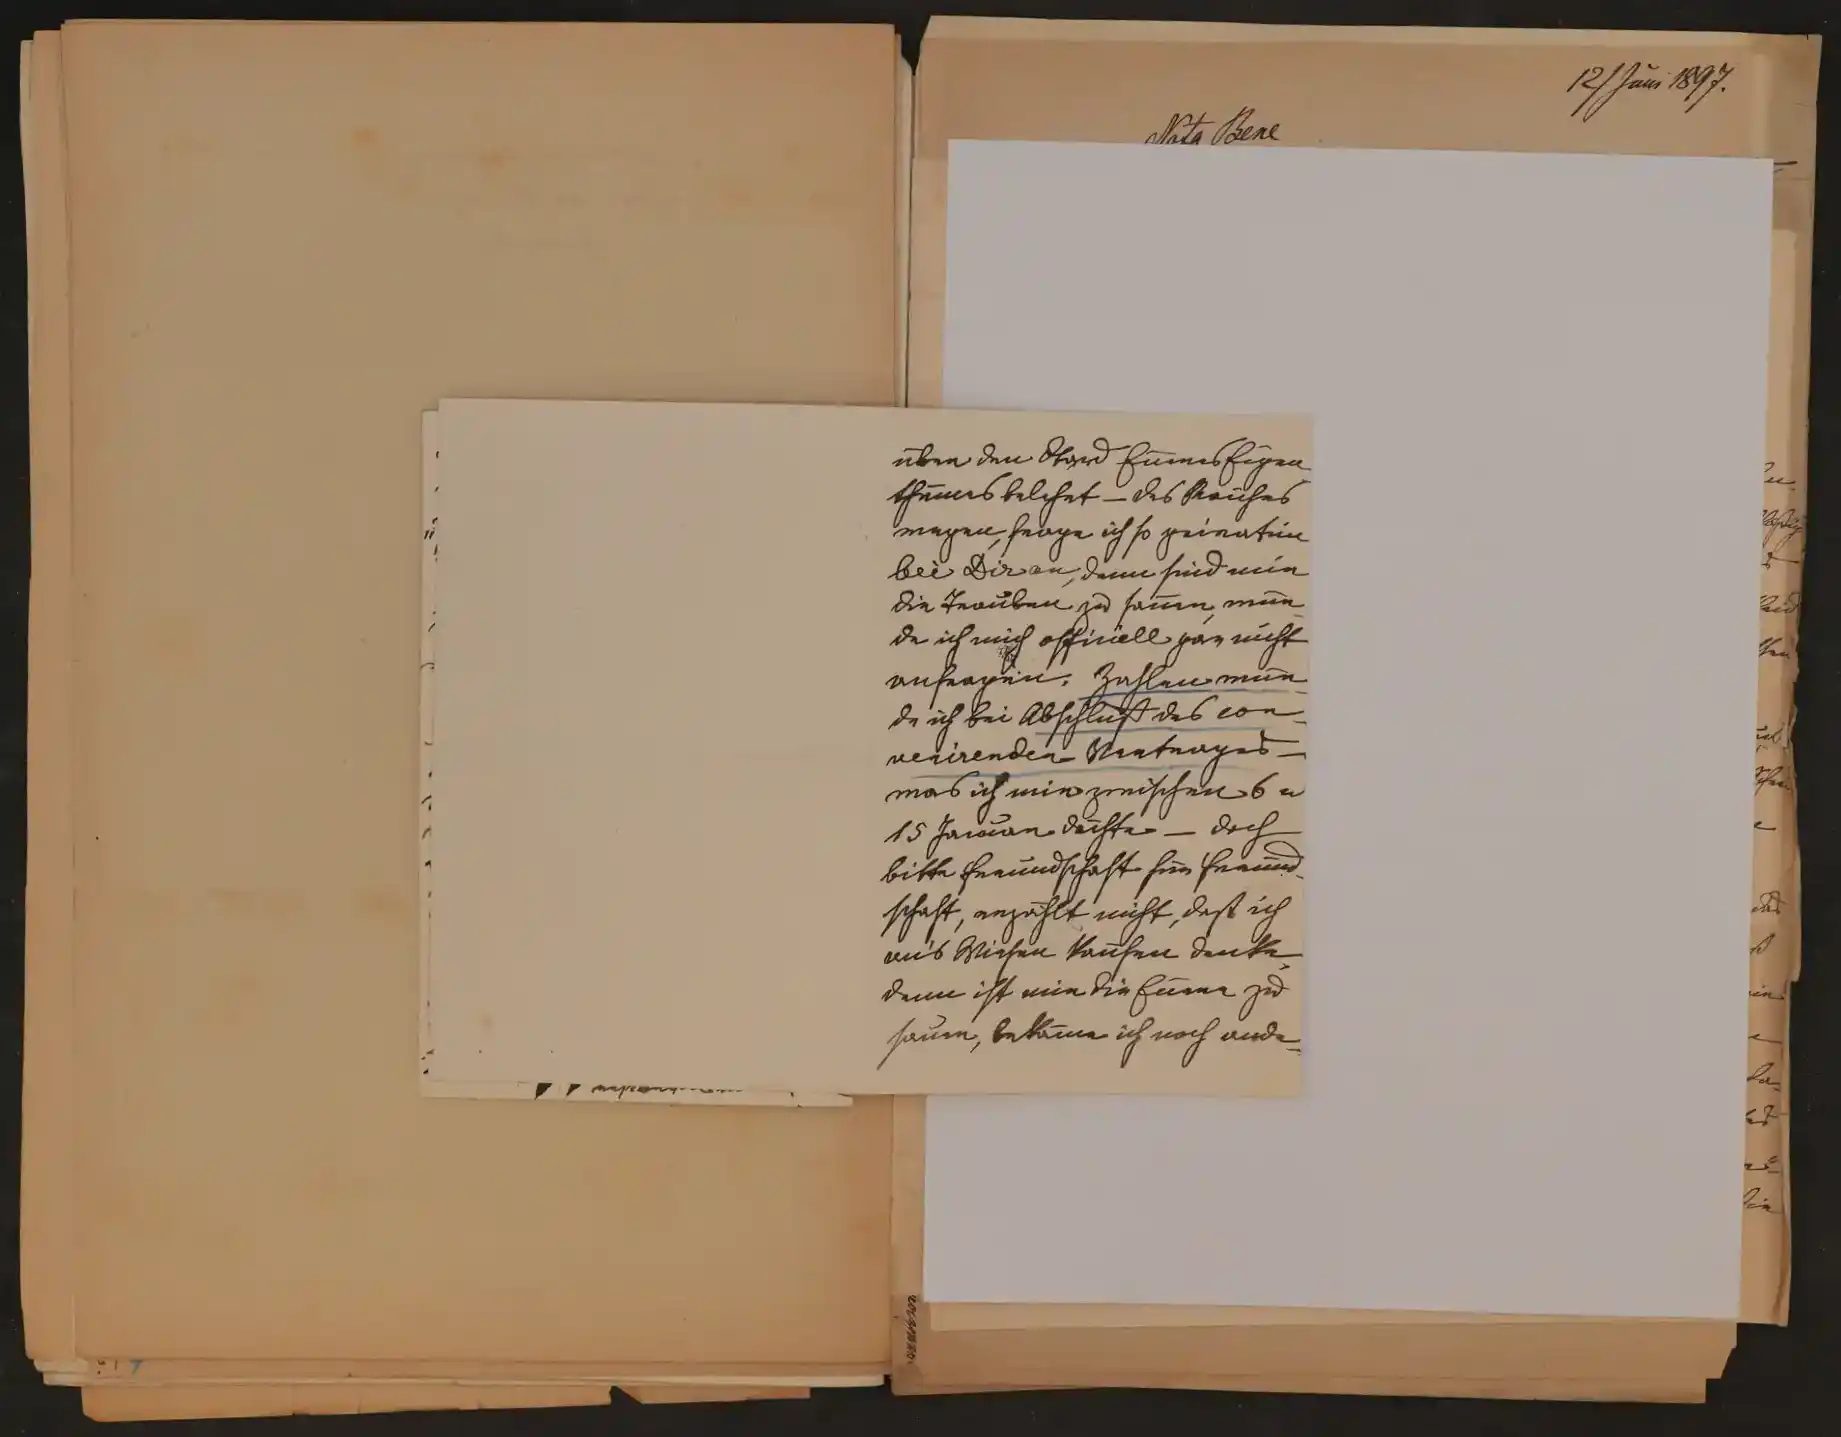 12/ Juni 1897.
Nota Bene
über den Stand Eueres Eigen
thumes belehrt – des Rauches
wegen, frage ich so privatim
bei Dir an, denn sind mir
die Trauben zu sauer, wür-
de ich mich officiell gar nicht
anfragen. Zahlen wür-
de ich bei Abschluß des con-
venirenden Vertrages –
was ich mir zwischen 6 u
15 Januar dächte – doch
bitte Freundschaft für Freund-
schaft, erzählt nicht, daß ich
an's Wiesen kaufen denke,
denn ist mir die Euere zu
sauer, bekäme ich noch ande-